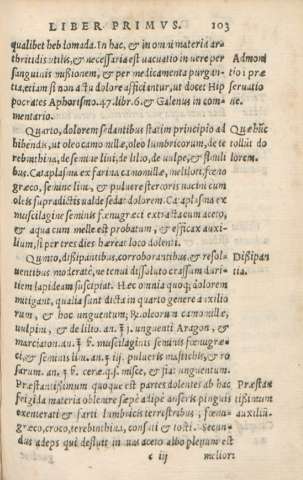 LIBER PRIMVS. 103
qualibet heb lomada. In hac, & in omni materia ar-
thritidis utilis, & necessaria est uacuatio in uere per Admoni
sanguinis mißionem, & per medicamenta purgan- tio: præ
tia, etiam si non actu dolore afficiantur, ut docet Hip seruatio
pocrates Aphorismo. 47. libr. 6. & Galenus in com- ne.
mentario.
Quarto, dolorem sedantibus statim principio ad Quæ hũc
hibendis, ut oleo camomillæ, oleo lumbricorum, de te tollũt do
rebinthina, de semine lini, de lilio, de uulpe, & similibus lorem.
bus. Cataplasma ex farina camomillæ, meliloti, fœno
græco, semine lini, & puluere stercoris uaccini cum
oleis supradictis ualde sedat dolorem. Cataplasma ex
muscilagine seminis fœnugræci extracta cum aceto,
& aqua cum melle est probatum, & efficax auxi-
lium, si per tres dies hæreat loco dolenti.
Quinto, dißipantibus, corroborantibus, & resol- Dißipan
uentibus moderatè, ne tenui dissoluto crassum duri- tia.
tiem lapideam suscipiat. Hæc omnia quoq; dolorem
mitigant, qualia sunt dicta in quarto genere auxilio
rum, & hoc unguentum; ℞. oleorum camomillæ,
uulpini, & de lilio. an. ℥ j. unguenti Aragon, &
marciaton. an. ℥ ß. muscilaginis seminis fœnugræ-
ci, & seminis lini. an. ʒ iij. pulueris mastichis, & ro
sarum. an. ʒ ß. ceræ. q. s. misce, & fiat unguentum.
Præstantißimum quoque est partes dolentes ab hac Præstan
frigida materia oblenire sæpè adipe anseris pinguis tißimum
exenterati & farti lumbricis terrestribus, fœnu- auxiliũ.
græco, croco, terebinthina, consiti & tosti. Secun-
dus adeps qui defluit in uas aceto albo plenum est
c iij meliori